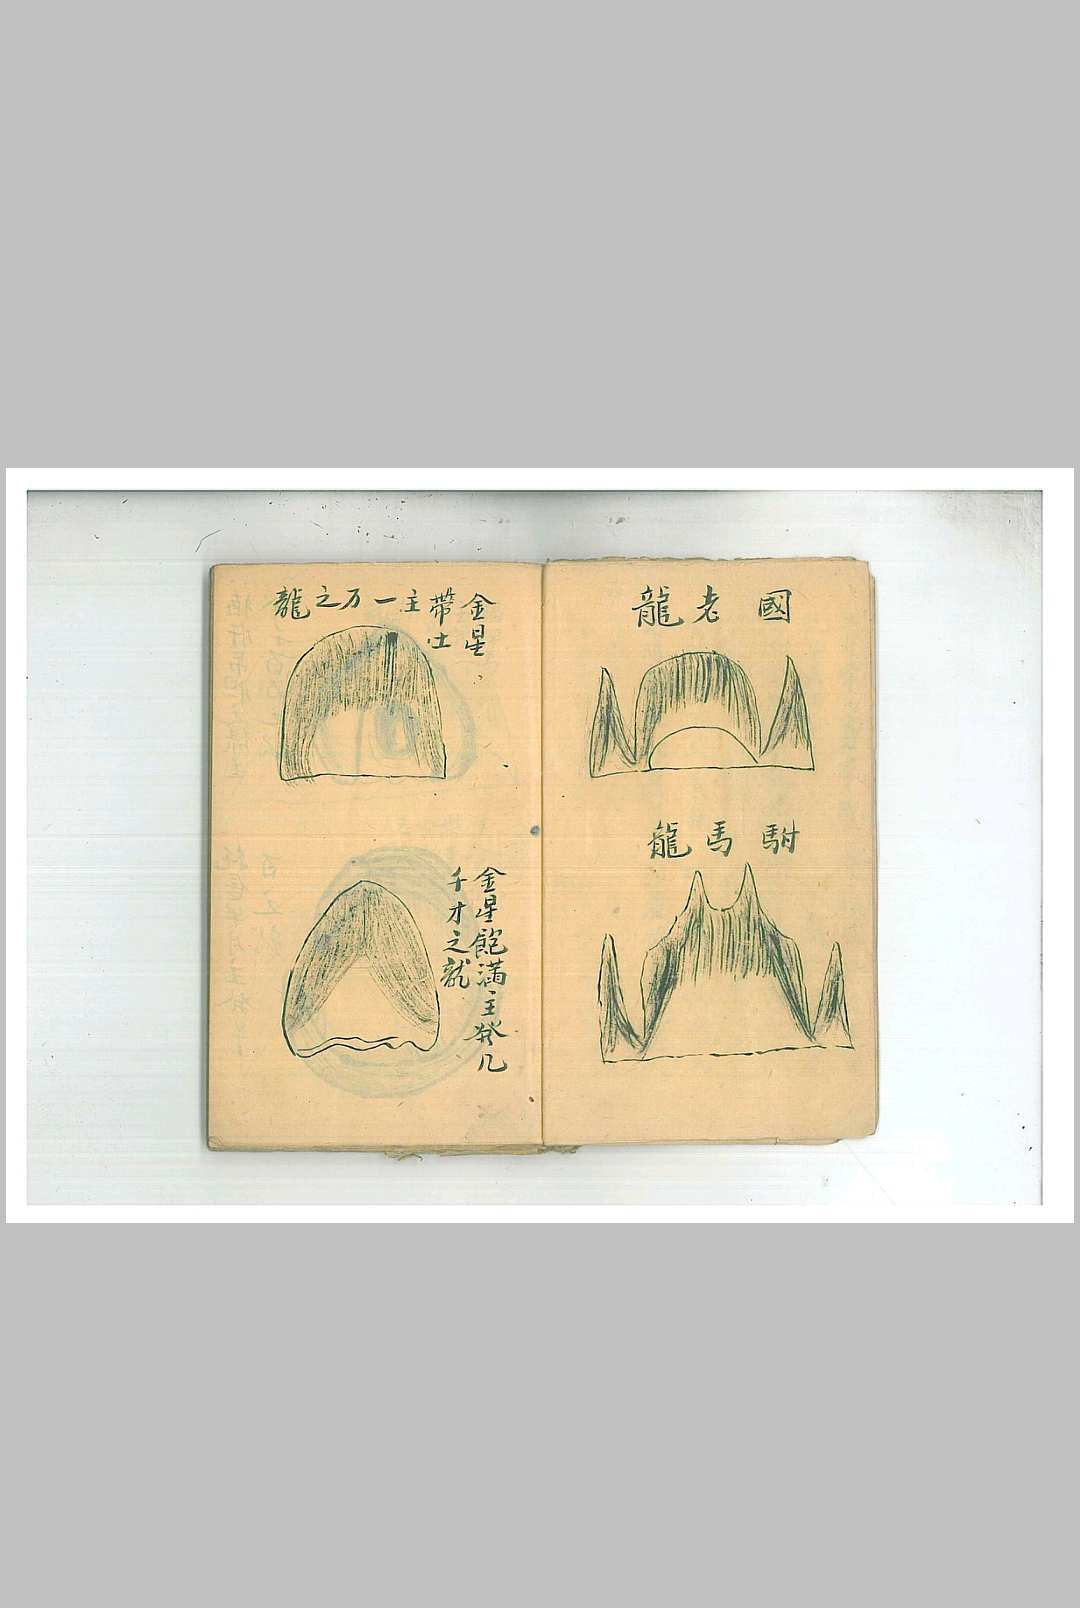 國老龍
駙馬龍
金星
帶土
主一万之龍
金星飽滿主發几
千才之龍